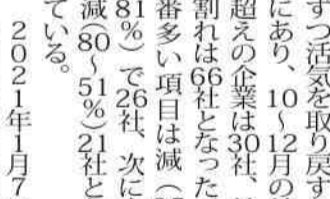 ずつ活気を取り戻す
にあり、10〜12月の
超えの企業は30社、
割れは66社となった
番多い項目は減（
81％）で26社、次に
減（80〜51％）21社と
ている。
2021年1月7